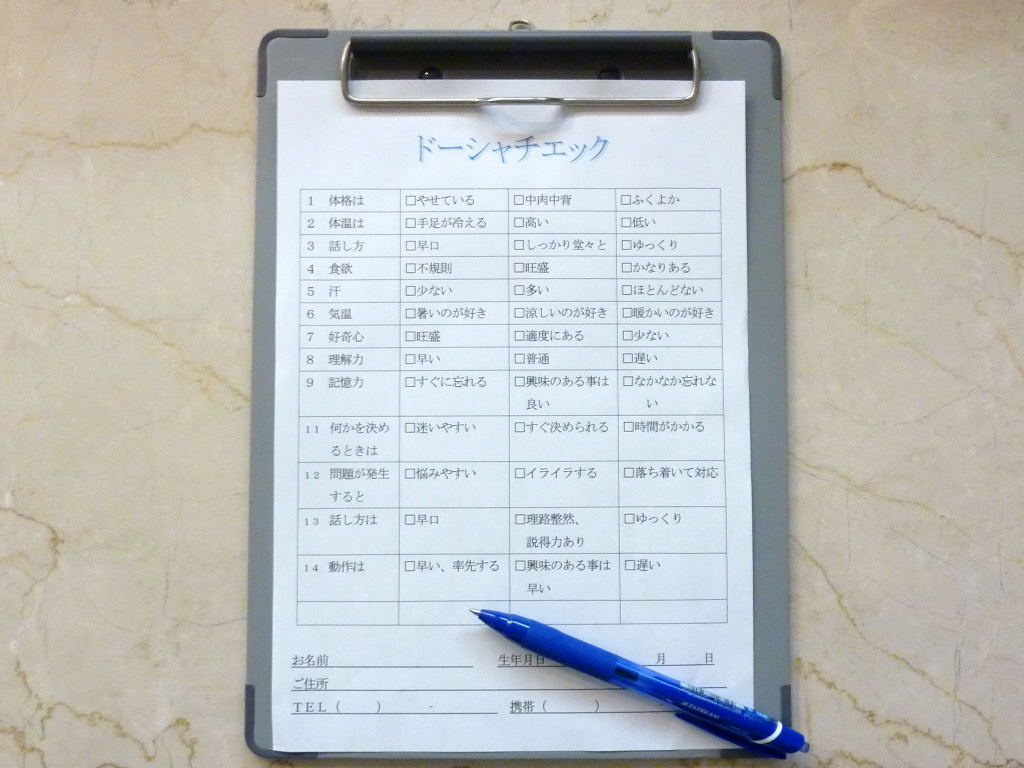 ドーシャチェック
1 体格は □やせている □中肉中背 □ふくよか
2 体温は □手足が冷える □高い □低い
3 話し方 □早口 □しっかり堂々と □ゆっくり
4 食欲 □不規則 □旺盛 □かなりある
5 汗 □少ない □多い □ほとんどない
6 気温 □暑いのが好き □涼しいのが好き □暖かいのが好き
7 好奇心 □旺盛 □適度にある □少ない
8 理解力 □早い □普通 □遅い
9 記憶力 □すぐに忘れる □興味のある事は □なかなか忘れな
良い い
11 何かを決め □迷いやすい □すぐ決められる □時間がかかる
るときは
12 問題が発生 □悩みやすい □イライラする □落ち着いて対応
すると
13 話し方は □早口 □理路整然、 □ゆっくり
説得力あり
14 動作は □早い、率先する □興味のある事は □遅い
早い
お名前 生年月日 月 日
ご住所
TEL( ) - 携帯( )
JETSTREAM